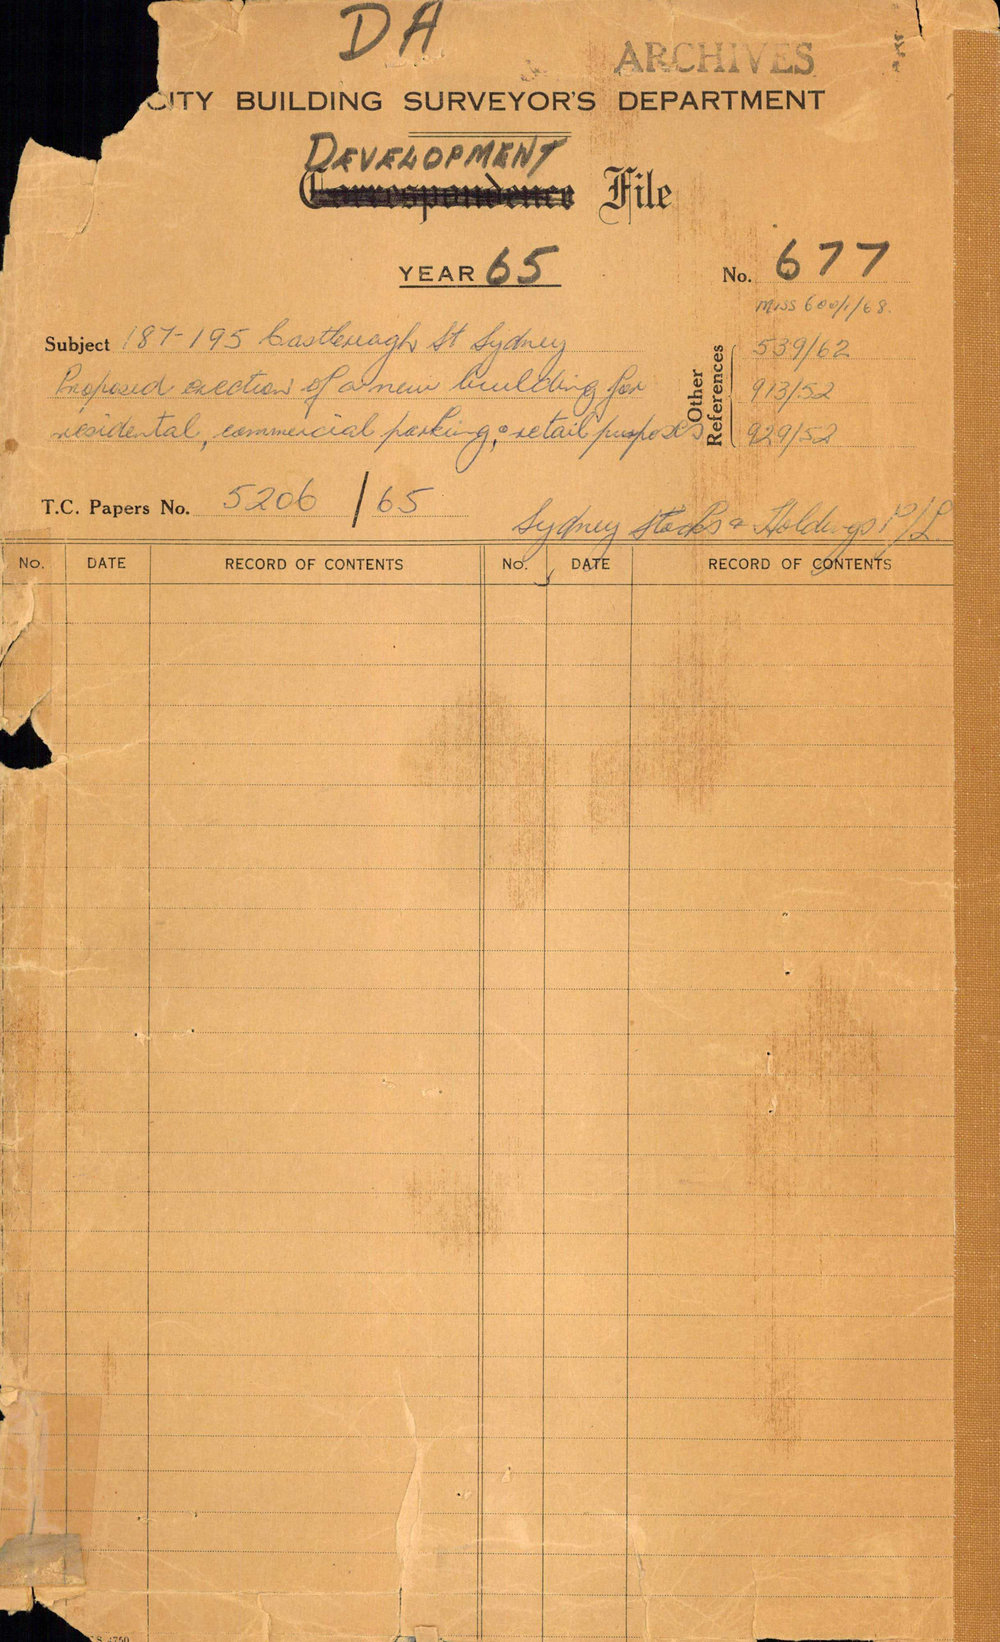 DA
ARCHIVES
CITY BUILDING SURVEYOR'S DEPARTMENT
DEVELOPMENT
Correspondence File
YEAR 65
No. 677
Miss 600/1/68.
Subject 187-195 Castlereagh St Sydney
Proposed erection of a new building for
residental, commercial parking, & retail purposes
Other References
539/62
913/52
929/52
T.C. Papers No. 5206 / 65
Sydney Stocks & Holdings P/L.
No. DATE RECORD OF CONTENTS No. DATE RECORD OF CONTENTS